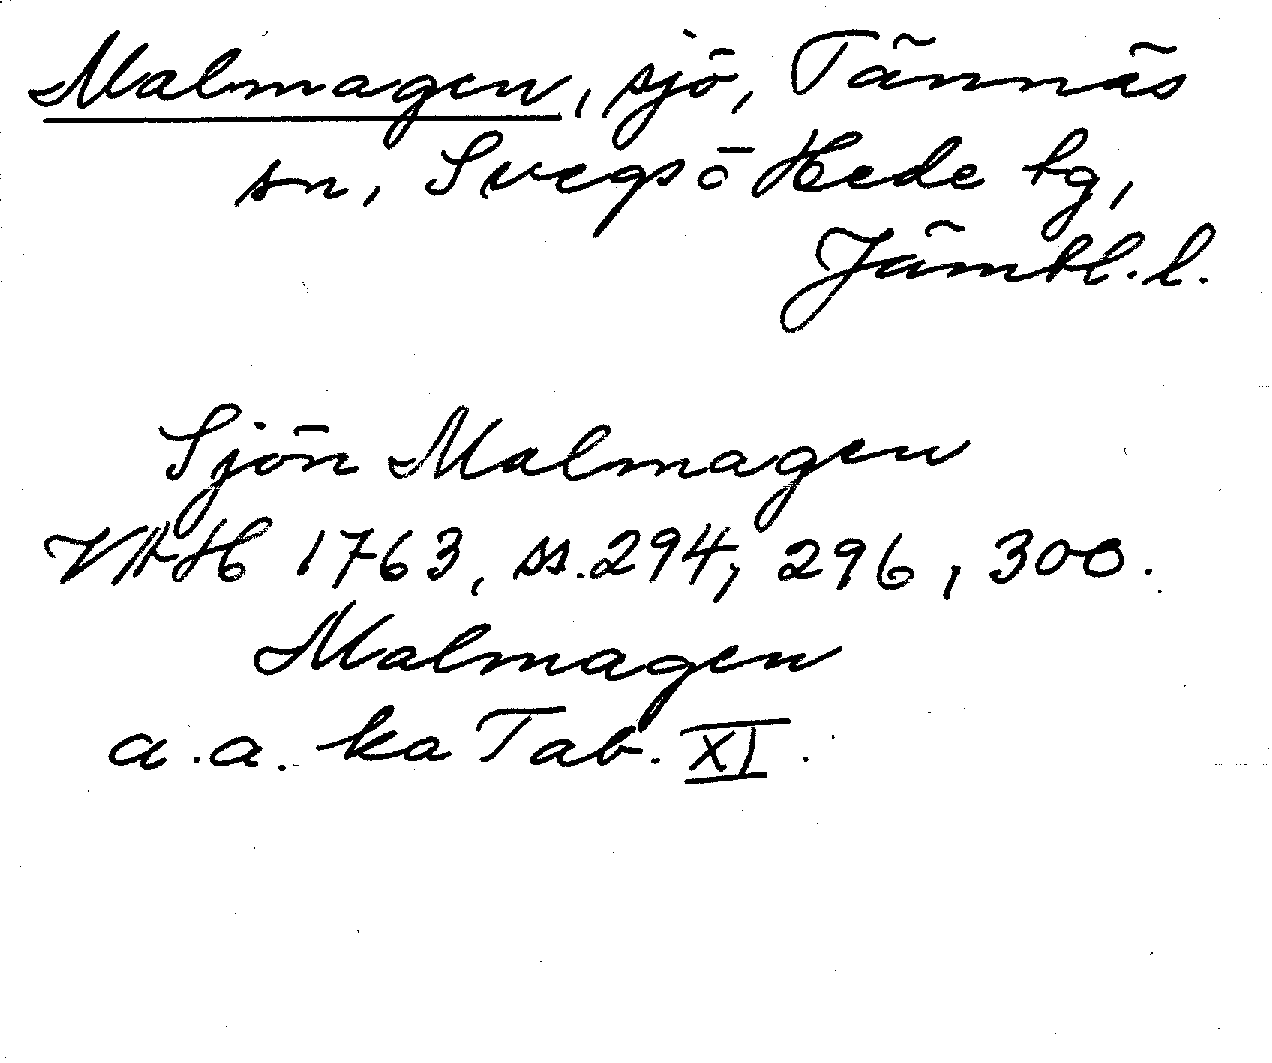 Malmagen, sjö, Tännäs
sn, Svegs o Hede tg,
Jämtl. l.
Sjön Malmagen
VAH 1763, ss. 294, 296, 300.
Malmagen
a. a. ka Tab. XI.